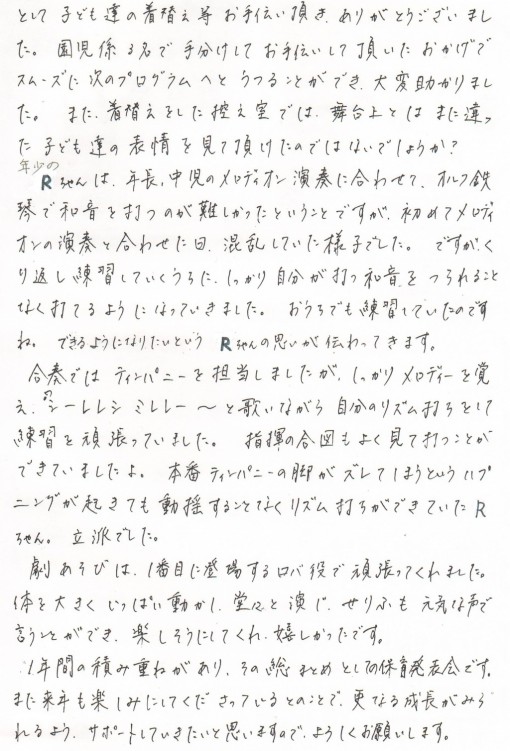 として子ども達の着替え等お手伝い頂き、ありがとうございまし
た。園児係3名で手分けしてお手伝いして頂いたおかげで
スムーズに次のプログラムへとうつることができ、大変助かりまし
た。また、着替えをした控え室では、舞台上とはまた違っ
た子ども達の表情を見て頂けたのではないでしょうか?
年少の
Rちゃんは、年長、中児のメロディオン演奏に合わせて、オルフ鉄
琴で和音を打つのが難しかったということですが、初めてメロディ
オンの演奏と合わせた日、混乱していた様子でした。ですが、く
り返し練習していくうちに、しっかり自分が打つ和音をつられること
なく打てるようになっていきました。おうちでも練習していたのです
ね。できるようになりたいという Rちゃんの思いが伝わってきます。
合奏ではティンパニーを担当しましたが、しっかりメロディーを覚
え、シーレレシ ミレレー〜と歌いながら自分のリズム打ちをして
練習を頑張っていました。指揮の合図もよく見て打つことが
できていましたよ。本番ティンパニーの脚がズレてしまうというハプ
ニングが起きても動揺することなくリズム打ちができていたR
ちゃん。立派でした。
劇あそびは、1番目に登場するロバ役で頑張ってくれました。
体を大きくいっぱい動かし、堂々と演じ、せりふも元気な声で
言うことができ、楽しそうにしてくれ、嬉しかったです。
1年間の積み重ねがあり、その総まとめとしての保育発表会です。
また来年も楽しみにしてくださっているとのことで、更なる成長がみら
れるよう、サポートしていきたいと思いますので、よろしくお願いします。